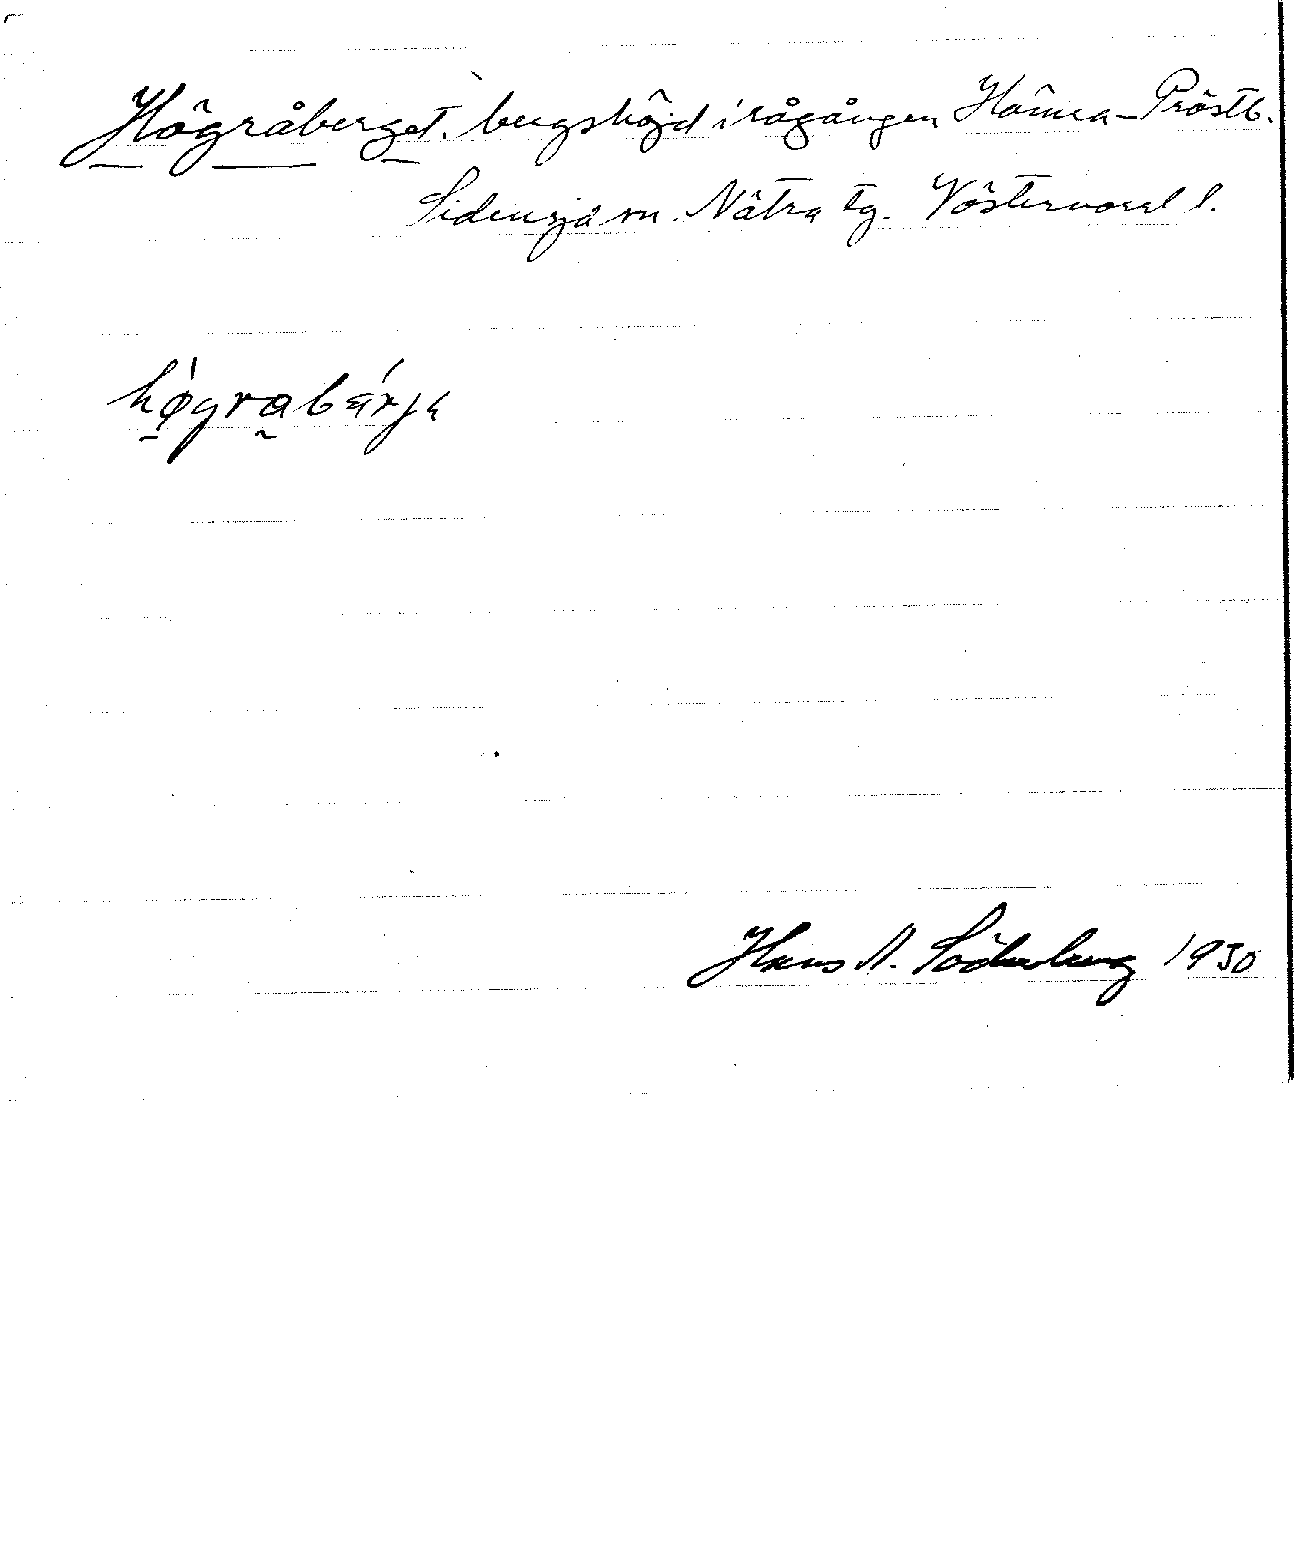 Högråberget. bergshöjd i rågången Hämra - Prästb.
Sidensjö sn. Nätra tg. Västernorrl l.
hø̀graba̱ʹrjɐ
Hans A. Söderberg 1930